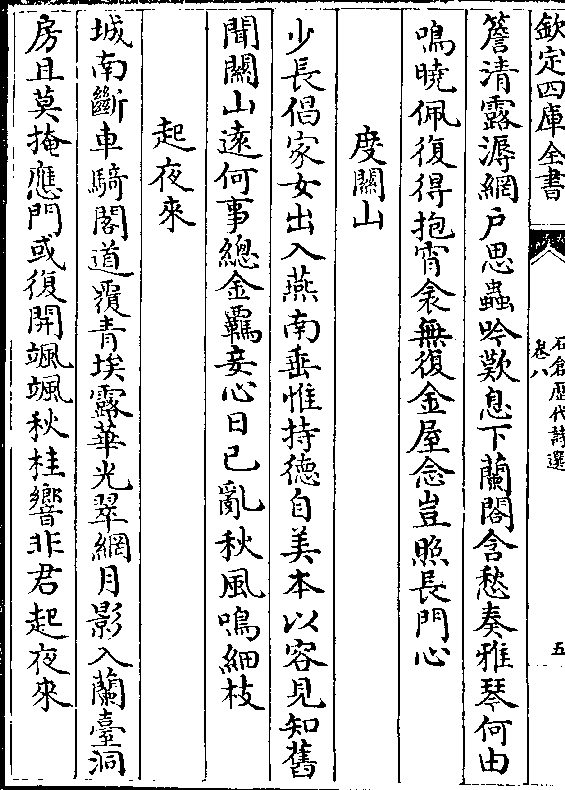 欽定四庫全書
石倉歷代詩選
卷八
五
簷清露溽網戶思蟲吟歎息下蘭閤含愁奏雅琴何由
鳴曉佩復得抱宵衾無復金屋念豈照長門心
度關山
少長倡家女出入燕南垂惟持德自美本以容見知舊
聞關山遠何事總金羈妾心日已亂秋風鳴細枝
起夜來
城南斷車騎閣道覆青埃露華光翠網月影入蘭臺洞
房且莫掩應門或復開颯颯秋桂響非君起夜來